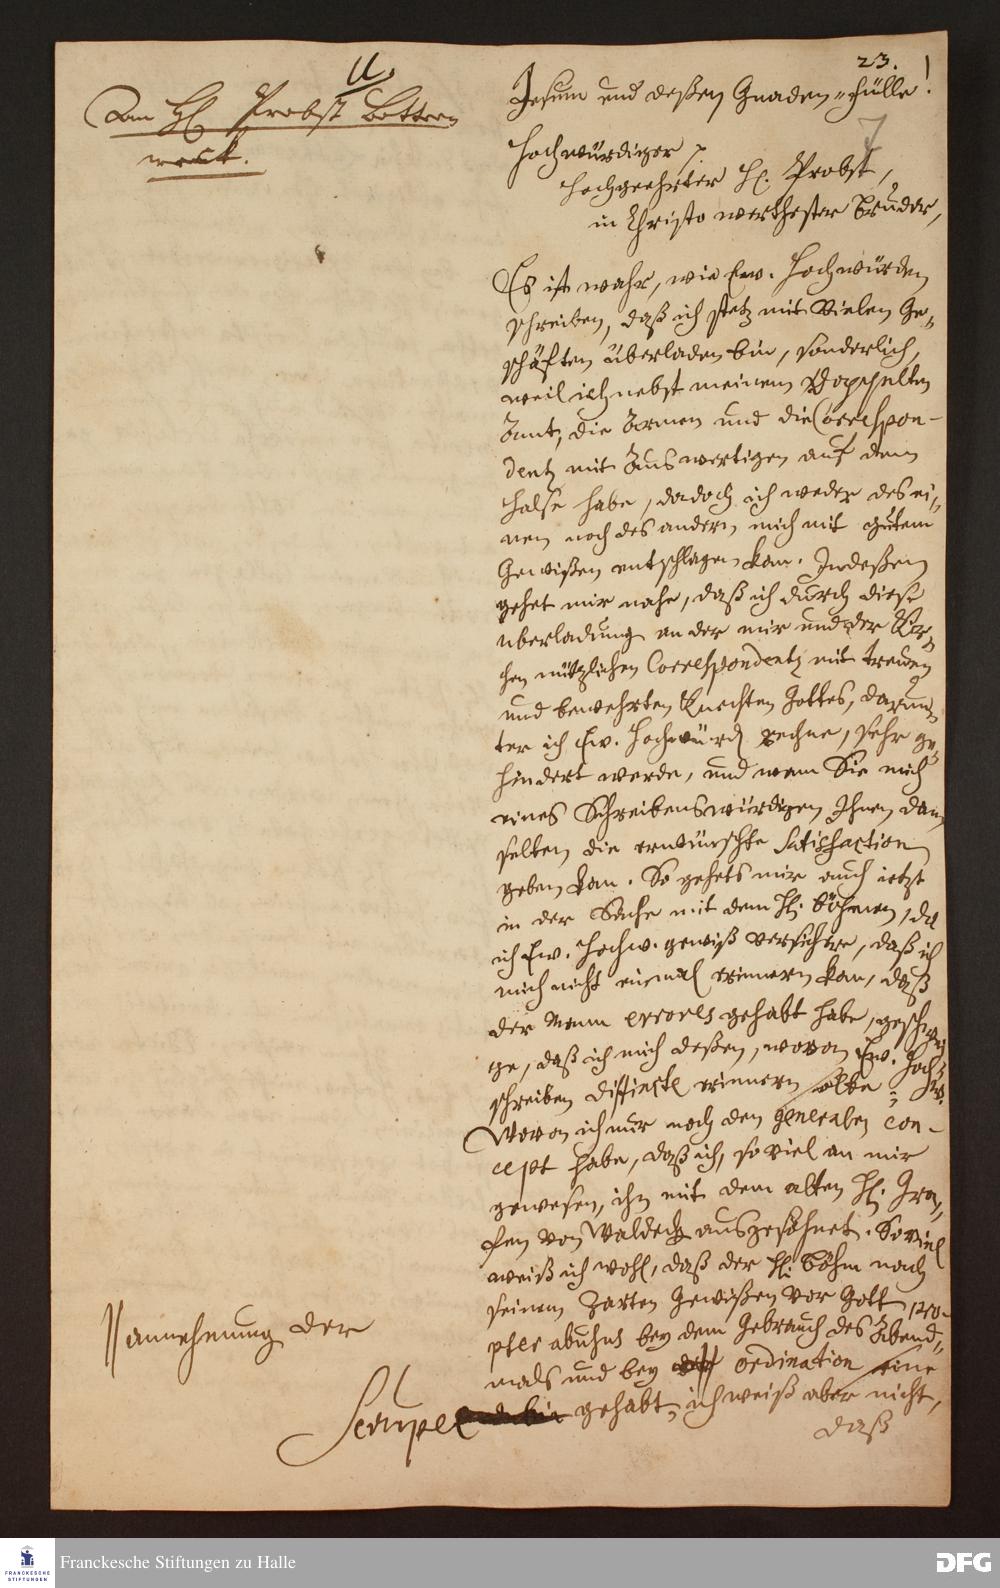 11.
An H. Probst Botter-
weck.
23.
7
Jesum und deßen Gnaden-Fülle!
Hochwürdiger p.
Hochgeehrter H. Probst,
in Christo werthester Bruder,
Es ist wahr, wie Ew. Hochwürden
schreiben, daß ich stetz mit vielen Ge-
schäften überladen bin, sonderlich,
weil ich nebst meinem doppelten
Amt, die Armen und die Correspon-
dentz mit Auswertigen auf dem
Halse habe, da doch ich weder des ei-
nen noch des andern mich mit gutem
Gewißen entschlagen kan. Indeßen
gehet mir nahe, daß ich durch diese
uberladung an der mir und der Kir-
chen nützlichen Correspondentz mit treuen
und bewehrten Knechten Gottes, darun-
ter ich Ew. Hochwürd rechne, sehr ge-
hindert werde, und wenn Sie mich
eines Schreibens würdigen Ihnen dan
selten die erwünschte Satisfaction
geben kan. So gehets mir auch ietzt
in der Sache mit dem H. Böhmen, da
ich Ew. Hochw. gewiß versichere, daß ich
mich nicht einmal erinnern kan, daß
der Mann errores gehabt habe, geschwei-
ge, daß ich mich deßen, wovon Ew. Hoch-
schreiben distincte erinnern solte; hw.
Wovon ich nur noch den generalen con-
cept habe, daß ich, so viel an mir
gewesen, ihn mit dem alten H. Gra-
fen von Waldeck ausgesöhnet. So viel
weiß ich wohl, daß der H. Böhm nach
seinem zarten Gewißen vor Gott pro-
pter abusus bey dem Gebrauch des Abend-
mals und bey ordination eine
|| annehmung der
Scrupel gehabt, ich weiß aber nicht,
daß
Franckesche Stiftungen zu Halle
FRANCKESCHE
STIFTUNGEN
DFG